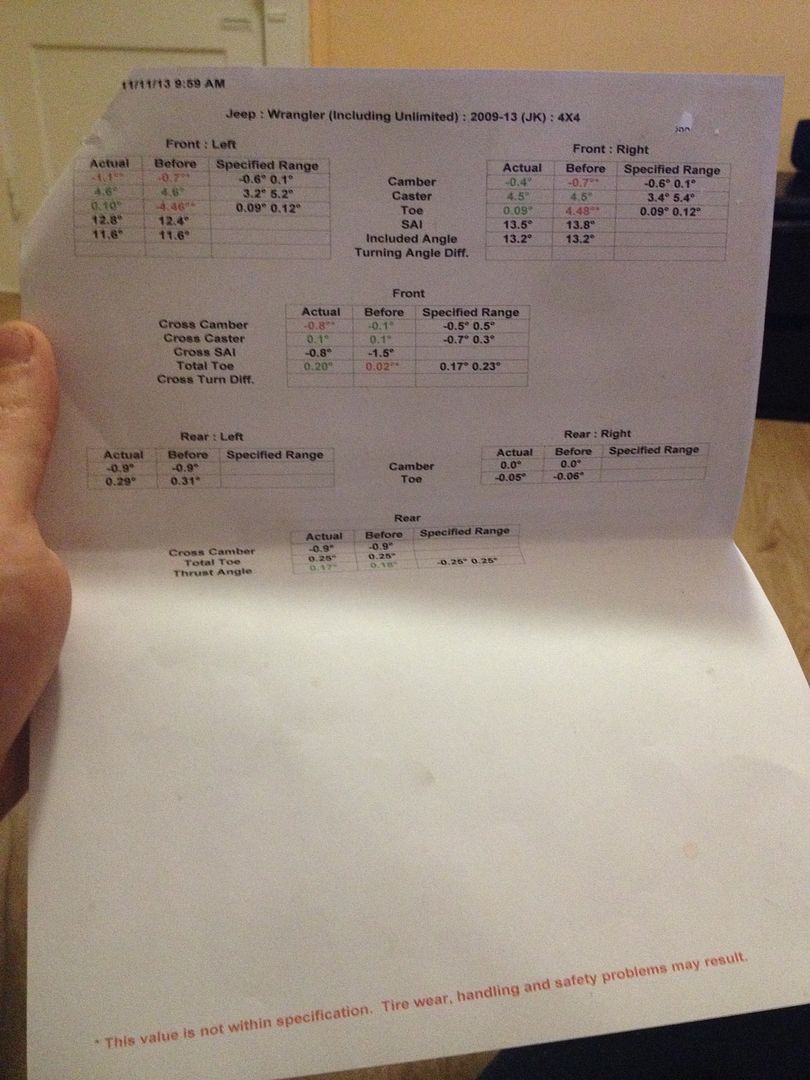 11/11/13 9:59 AM
Jeep : Wrangler (Including Unlimited) : 2009-13 (JK) : 4X4
Front : Left Front : Right
Actual Before Specified Range Actual Before Specified Range
-1.1°* -0.7°* -0.6° 0.1° Camber -0.4° -0.7°* -0.6° 0.1°
4.6° 4.6° 3.2° 5.2° Caster 4.5° 4.5° 3.4° 5.4°
0.10° -4.46°* 0.09° 0.12° Toe 0.09° 4.48°* 0.09° 0.12°
12.8° 12.4° SAI 13.5° 13.8°
11.6° 11.6° Included Angle 13.2° 13.2°
Turning Angle Diff.
Front
Actual Before Specified Range
Cross Camber -0.8°* -0.1° -0.5° 0.5°
Cross Caster 0.1° 0.1° -0.7° 0.3°
Cross SAI -0.8° -1.5°
Total Toe 0.20° 0.02°* 0.17° 0.23°
Cross Turn Diff.
Rear : Left Rear : Right
Actual Before Specified Range Actual Before Specified Range
-0.9° -0.9° Camber 0.0° 0.0°
0.29° 0.31° Toe -0.05° -0.06°
Rear
Actual Before Specified Range
Cross Camber -0.9° -0.9°
Total Toe 0.25° 0.25°
Thrust Angle 0.17° 0.18° -0.25° 0.25°
* This value is not within specification. Tire wear, handling and safety problems may result.